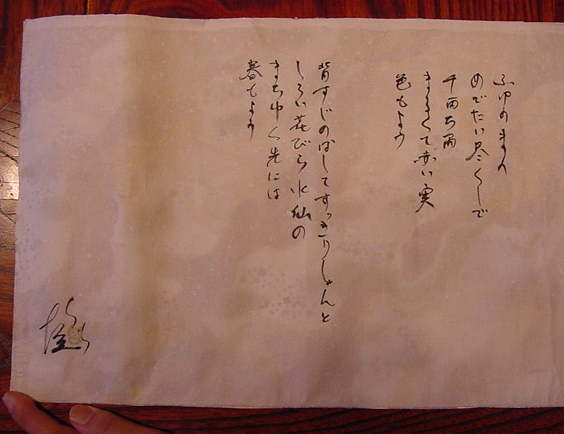 ふゆのまつり
めでたい尽くしで
千両万両
まるくて赤い実
色もよう
背すじのばしてすっきりしゃんと
しろい花びら水仙の
まちゆく先には
春もよう